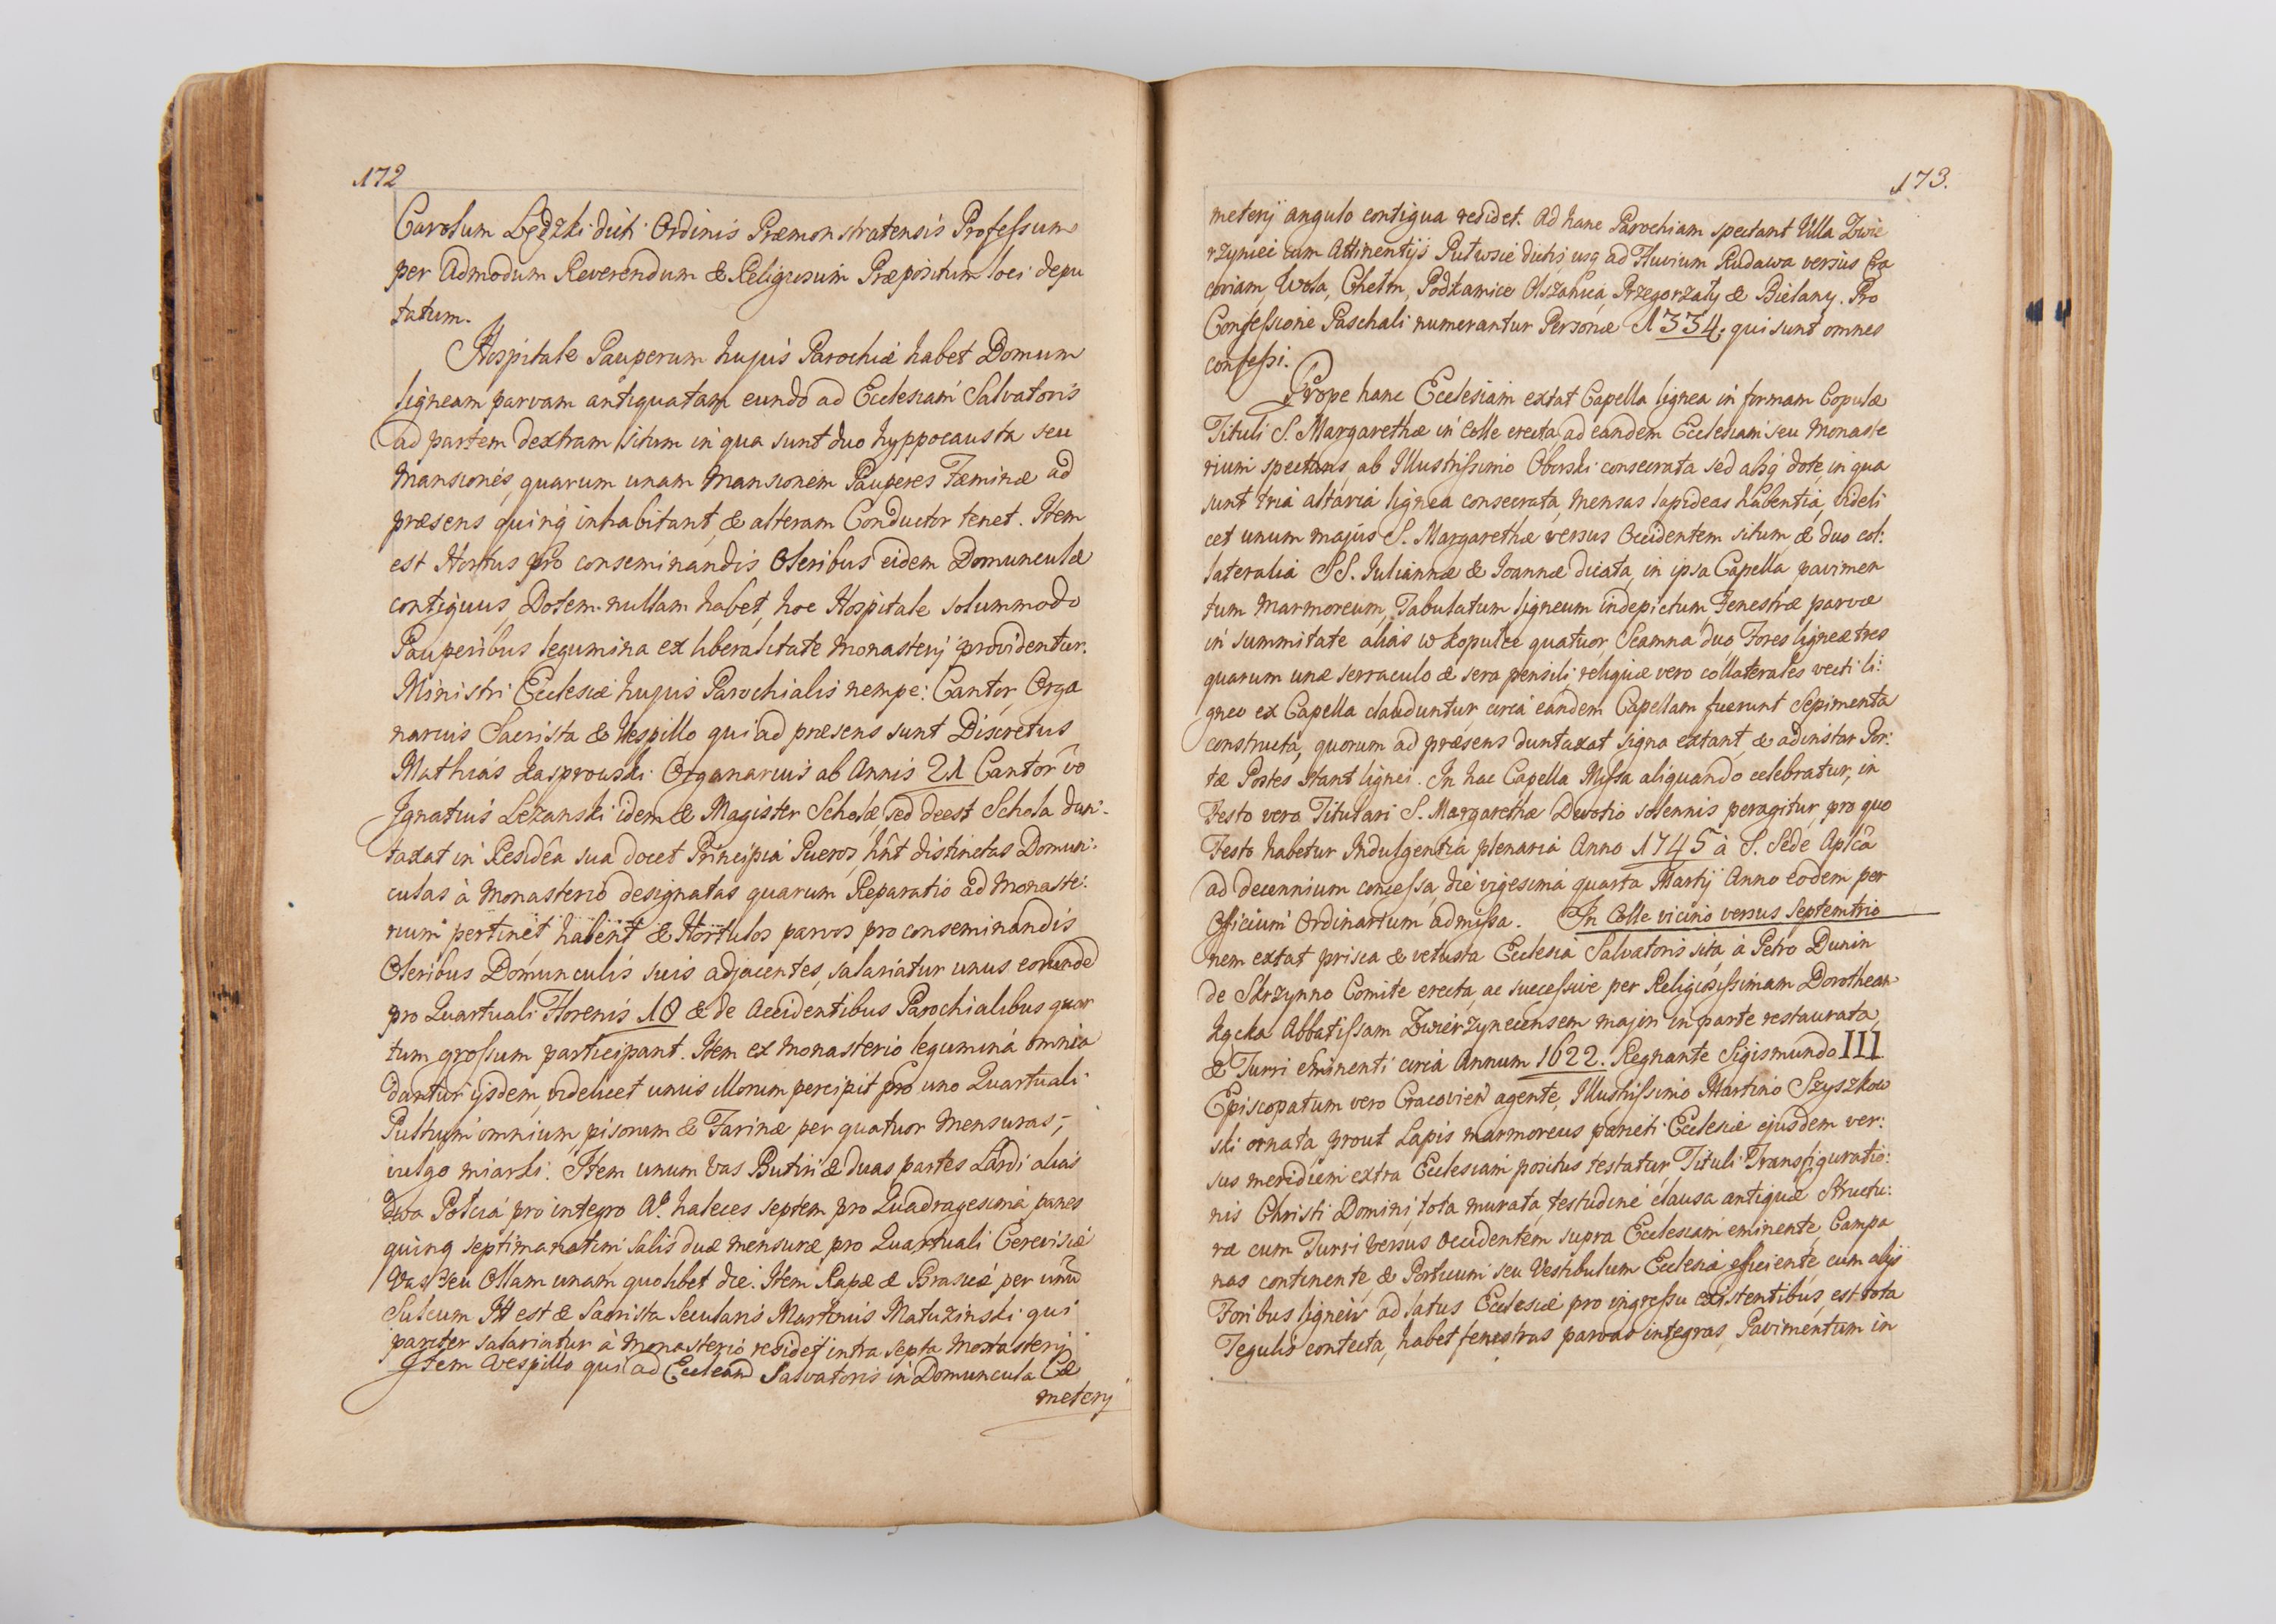 172
Carolum Lędzki dicti Ordinis Præmonstratensis Professum
per Admodum Reverendum & Religiosum Præpositum loci depu
tatum.
Hospitale Pauperum hujus Parochiæ habet Domum
ligneam parvam antiquatam eundo ad Ecclesiam Salvatoris
ad partem dextram sitam in qua sunt duo hyppocausta seu
Mansiones, quarum unam Mansionem Pauperes Fæminæ ad
præsens quinq inhabitant, & alteram Conductor tenet. Item
est Hortus pro conseminandis Oleribus eidem Domunculæ
contiguus, Dotem nullam habet, hoc Hospitale solummodo
Pauperibus legumina ex liberalitate Monasterij providentur.
Ministri Ecclesiæ hujus Parochialis nempe: Cantor, Orga
narius Sacrista & Vespillo qui ad præsens sunt Discretus
Mathias Kasprowski Organarius ab Annis 21 Cantor vo
Ignatius Lezanski idem & Magister Scholæ, sed deest Schola dun-
taxat in Residêa sua docet Principia Pueros, hnt distinctas Domun:
culas à Monasterio designatas quarum Reparatio ad Monaste:
rium pertinet habent & Hortulos parvos pro conseminandis
Oleribus Domunculis suis adjacentes, salariatur unus eorunde
pro Quartuali Florenis 10 & de Accidentibus Parochialibus quar
tum grossum participant. Item ex Monasterio legumina omnia
dantur ijsdem, videlicet unus illorum percipit pro uno Quartuali
Pultum omnium, pisorum & Farinæ per quatuor Mensuras,
vulgo miarki. Item unum Vas Butiri & duas partes Lardi alias
dwa Połcia pro integro Ao. haleces septem pro Quadragesima panes
quinq septimanatim salis duæ mensuræ pro Quartuali Cerevisiæ
Vas seu Ollam unam quolibet die. Item Rapæ & Brasicæ per unu
Sulcum Itt est & Sacrista Secularis Martinus Matuzinski qui
pariter salariatur à Monasterio residet intra septa Monasterij
Item Vespillo qui ad Eccleam Salvatoris in Domuncula Cæ
meterij
173.
meterij angulo contigua residet. Ad hanc Parochiam spectant Villa Zwie
rzyniec cum Attinentijs Pułwsie dictis, usq ad Fluvium Rudawa versus Cra
coviam, Wola, Chełm, Podkamice Olszanica, Przegorzały & Bielany. Pro
Confessione Paschali numerantur Personæ 1334. qui sunt omnes
confessi.
Prope hanc Ecclesiam extat Capella lignea in formam Copulæ
Tituli S. Margarethæ in Colle erecta, ad eandem Ecclesiam seu Monaste
rium spectans, ab Illustrissimo Oborski consecrata sed absq dote, in qua
sunt tria altaria lignea consecrata, mensas lapideas habentia, videli
cet unum majus S. Margarethæ versus Occidentem situm, & duo col:
lateralia SS. Juliannæ & Joannæ dicata, in ipsa Capella pavimen
tum Marmoreum, Tabulatum ligneum indepictum, Fenestræ parvæ
in summitate alias w kopulce quatuor, Scamna duo, Fores ligneæ tres
quarum unæ serraculo & sera pensili, reliquæ vero collaterales vecti li:
gneo ex Capella clauduntur, circa eandem Capellam fuerunt Sepimenta
constructa, quorum ad præsens duntaxat signa extant, & ad instar Por:
tæ Postes stant lignei. In hac Capella Missa aliquando celebratur, in
Festo vero Titulari S. Margarethæ Devotio solennis peragitur, pro quo
Festo habetur Indulgentia plenaria Anno 1745 à S. Sede Aplca
ad decennium concessa, die vigesima quarta Martij Anno eodem per
Officium Ordinarium admissa. In Colle vicino versus Septemtrio
nem extat prisca & vetusta Ecclesia Salvatoris sita à Petro Dunin
de Skrzynno Comite erecta, ac successive per Religiosissimam Dorotheam
Kącka Abbatissam Zwierzynecensem majori in parte restaurata,
& Turri eminenti circa Annum 1622. Regnante Sigismundo III
Episcopatum vero Cracovien agente, Illustrissimo Martino Szyszkow
ski ornata, prout Lapis marmoreus parieti Ecclesiæ ejusdem ver:
sus meridiem extra Ecclesiam positus testatur, Tituli Transfiguratio:
nis Christi Domini, tota murata, testudine clausa antiquæ Structu:
ræ cum Turri versus Occidentem supra Ecclesiam eminente, Campa
nas continente, & Porticum seu Vestibulum Ecclesiæ efficiente, cum alijs
Foribus ligneis ad latus Ecclesiæ pro ingressu existentibus, est tota
Tegulis contecta, habet fenestras parvas integras, Pavimentum in